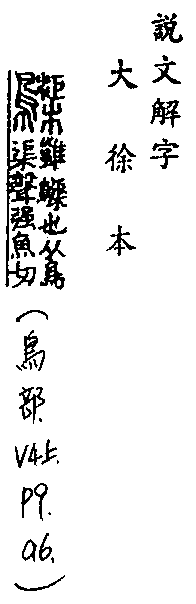 說文解字
大徐本
也从鳥
渠聲强魚切
(鳥部. V4上. P9. a6.)